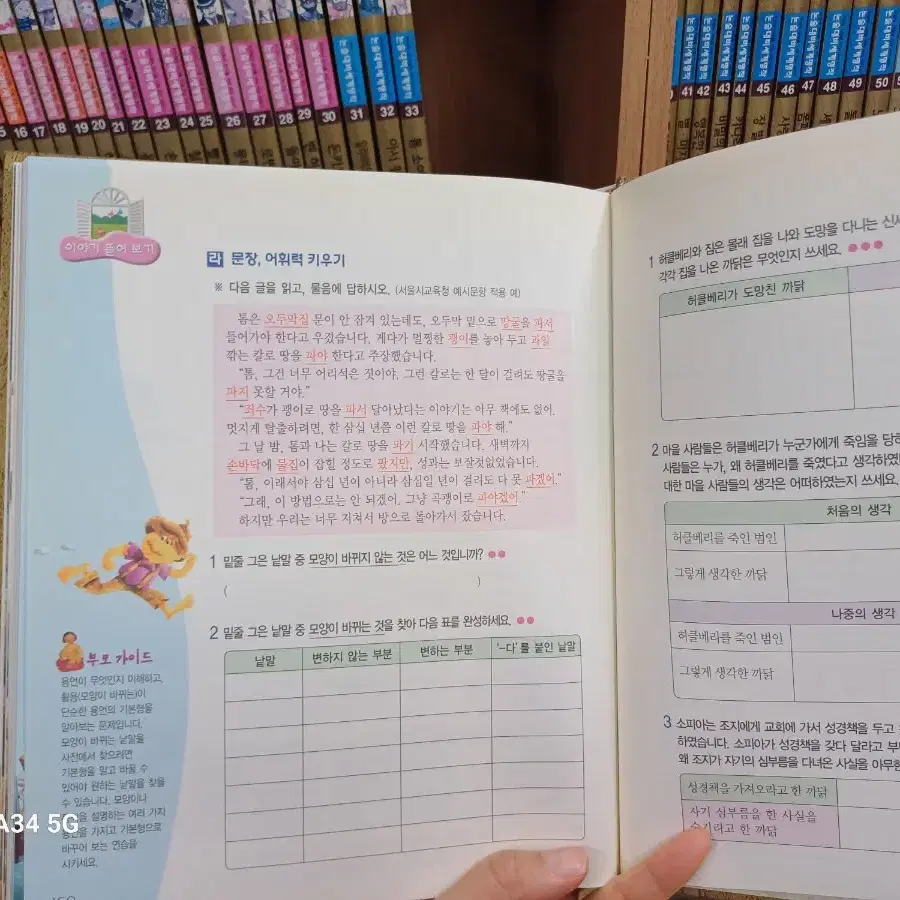 논술대비세계명작
16 17 18 19 20 21 22 23 24 25 26 27 28 29 30 31 32 33
41 42 43 44 45 46 47 48 49 50
이야기 뜯어 보기
라 문장, 어휘력 키우기
※ 다음 글을 읽고, 물음에 답하시오. (서울시교육청 예시문항 적용 예)
톰은 오두막집 문이 안 잠겨 있는데도, 오두막 밑으로 땅굴을 파서
들어가야 한다고 우겼습니다. 게다가 멀쩡한 괭이를 놓아 두고 과일
깎는 칼로 땅을 파야 한다고 주장했습니다.
“톰, 그건 너무 어리석은 짓이야. 그런 칼로는 한 달이 걸려도 땅굴을
파지 못할 거야.”
“죄수가 괭이로 땅을 파서 달아났다는 이야기는 아무 책에도 없어.
멋지게 탈출하려면, 한 삼십 년쯤 이런 칼로 땅을 파야 해.”
그 날 밤, 톰과 나는 칼로 땅을 파기 시작했습니다. 새벽까지
손바닥에 물집이 잡힐 정도로 팠지만, 성과는 보잘것없었습니다.
“톰, 이래서야 삼십 년이 아니라 삼십일 년이 걸려도 다 못 파겠어.”
“그래, 이 방법으로는 안 되겠어. 그냥 곡괭이로 파야겠어.”
하지만 우리는 너무 지쳐서 방으로 돌아가서 잤습니다.
1 밑줄 그은 낱말 중 모양이 바뀌지 않는 것은 어느 것입니까?
( )
2 밑줄 그은 낱말 중 모양이 바뀌는 것을 찾아 다음 표를 완성하세요.
낱말 변하지 않는 부분 변하는 부분 ‘-다’를 붙인 낱말
부모 가이드
용언이 무엇인지 이해하고,
활용(모양이 바뀌는)이
단순한 용언의 기본형을
알아보는 문제입니다.
모양이 바뀌는 낱말을
사전에서 찾으려면
기본형을 알고 바꿀 수
있어야 원하는 낱말을 찾을
수 있습니다. 모양이나
설명하는 여러 가지
용언을 가지고 기본형으로
바꾸어 보는 연습을
시키세요.
A34 5G
1 허클베리와 짐은 몰래 집을 나와 도망을 다니는
각각 집을 나온 까닭은 무엇인지 쓰세요.
허클베리가 도망친 까닭
2 마을 사람들은 허클베리가 누군가에게 죽임을
사람들은 누가, 왜 허클베리를 죽였다고
대한 마을 사람들의 생각은 어떠하였는지 쓰세요.
처음의 생각
허클베리를 죽인 범인
그렇게 생각한 까닭
나중의 생각
허클베리를 죽인 범인
그렇게 생각한 까닭
3 소피아는 조지에게 교회에 가서 성경책을 두고
하였습니다. 소피아가 성경책을 갖다 달라고
왜 조지가 자기의 심부름을 다녀온 사실을
성경책을 가져오라고 한 까닭
자기 심부름을 한 사실을
숨기라고 한 까닭